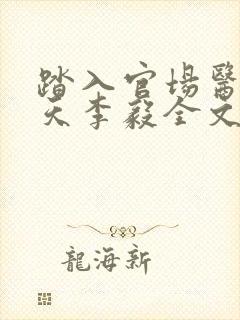 踏入官場醫
天李毅全文
龍海新